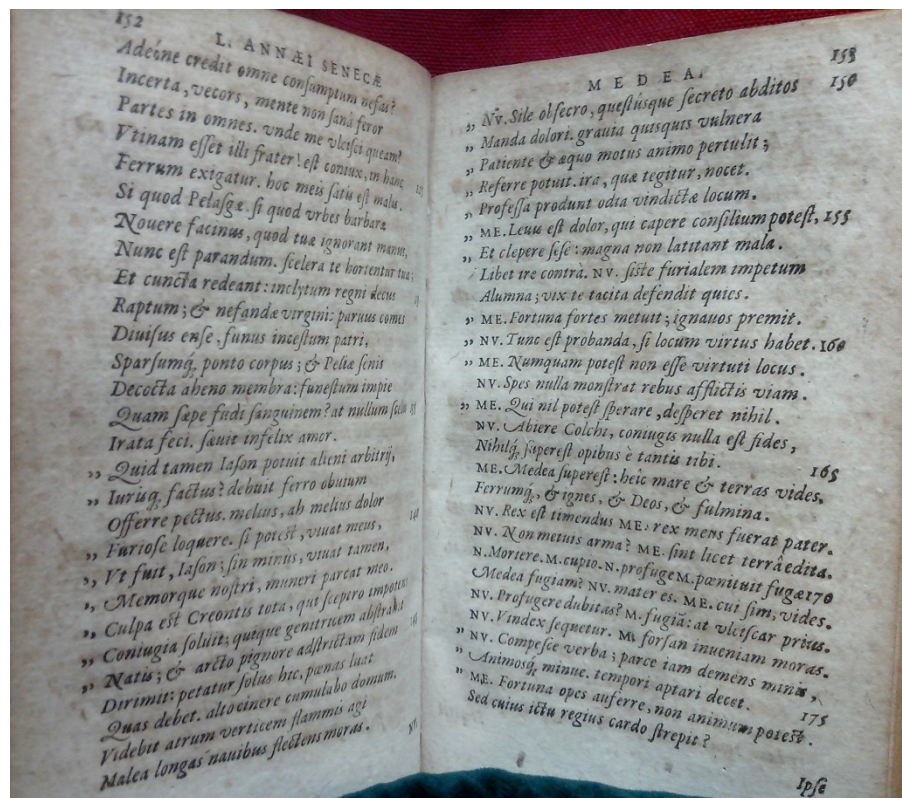 152
L. ANNÆI SENECÆ
Adeóne credit omne consumptum nefas?
Incerta, vecors, mente non sanâ feror
Partes in omnes. vnde me vlcisci queam?
Vtinam esset illi frater! est coniux, in hanc
Ferrum exigatur. hoc meis satis est malis.
Si quod Pelasgæ. si quod vrbes barbaræ
Nouere facinus, quod tuæ ignorant manus,
Nunc est parandum. scelera te hortentur tua;
Et cuncta redeant: inclytum regni decus
Raptum; & nefandæ virginis paruus comes
Diuisus ense, funus incestum patri,
Sparsumq́, ponto corpus; & Peliæ senis
Decocta aheno membra: funestum impie
Quam sæpe fudi sanguinem? at nullum scelus
Irata feci. sæuit infelix amor.
,, Quid tamen Iason potuit alieni arbitrij,
,, Iurisq́, factus? debuit ferro obuium
Offerre pectus. melius, ah melius dolor
,, Furiose loquere. si potest, viuat meus,
,, Vt fuit, Iason; sin minus, viuat tamen,
,, Memorque nostri, muneri parcat meo.
,, Culpa est Creontis tota, qui sceptro impotens
,, Coniugia soluit; quique genitricem abstrahit
,, Natis; & arcto pignore adstrictam fidem
Dirimit: petatur solus hic, pœnas luat
Quas debet. alto cinere cumulabo domum.
Videbit atrum verticem flammis agi
Malea longas nauibus flectens moras.
NV.
153
MEDEA.
,, NV. Sile obsecro, questúsque secreto abditos 150
,, Manda dolori. grauia quisquis vulnera
,, Patiente & æquo motus animo pertulit;
,, Referre potuit. ira, quæ tegitur, nocet.
,, Professa produnt odia vindictæ locum.
,, ME. Leuis est dolor, qui capere consilium potest, 155
,, Et clepere sese: magna non latitant mala.
Libet ire contrà. NV. siste furialem impetum
Alumna; vix te tacita defendit quies.
,, ME. Fortuna fortes metuit; ignauos premit.
,, NV. Tunc est probanda, si locum virtus habet. 160
,, ME. Numquam potest non esse virtuti locus.
NV. Spes nulla monstrat rebus afflictis viam.
,, ME. Qui nil potest sperare, desperet nihil.
NV. Abiere Colchi, coniugis nulla est fides,
Nihilq́, superest opibus è tantis tibi. 165
ME. Medea superest: hîc mare & terras vides,
Ferrumq́, & ignes, & Deos, & fulmina.
NV. Rex est timendus ME. rex meus fuerat pater.
NV. Non metuis arma? ME. sint licet terrâ edita.
N. Moriere. M. cupio. N. profuge M. pœnituit fugæ 170
Medea fugiam? NV. mater es. ME. cui sim, vides.
NV. Profugere dubitas? M. fugiã: at vlciscar prius.
NV. Vindex sequetur. M. forsan inueniam moras.
,, NV. Compesce verba; parce iam demens minis,
,, Animosq́, minue. tempori aptari decet. 175
,, ME. Fortuna opes auferre, non animum potest.
Sed cuius ictu regius cardo strepit?
Ipse